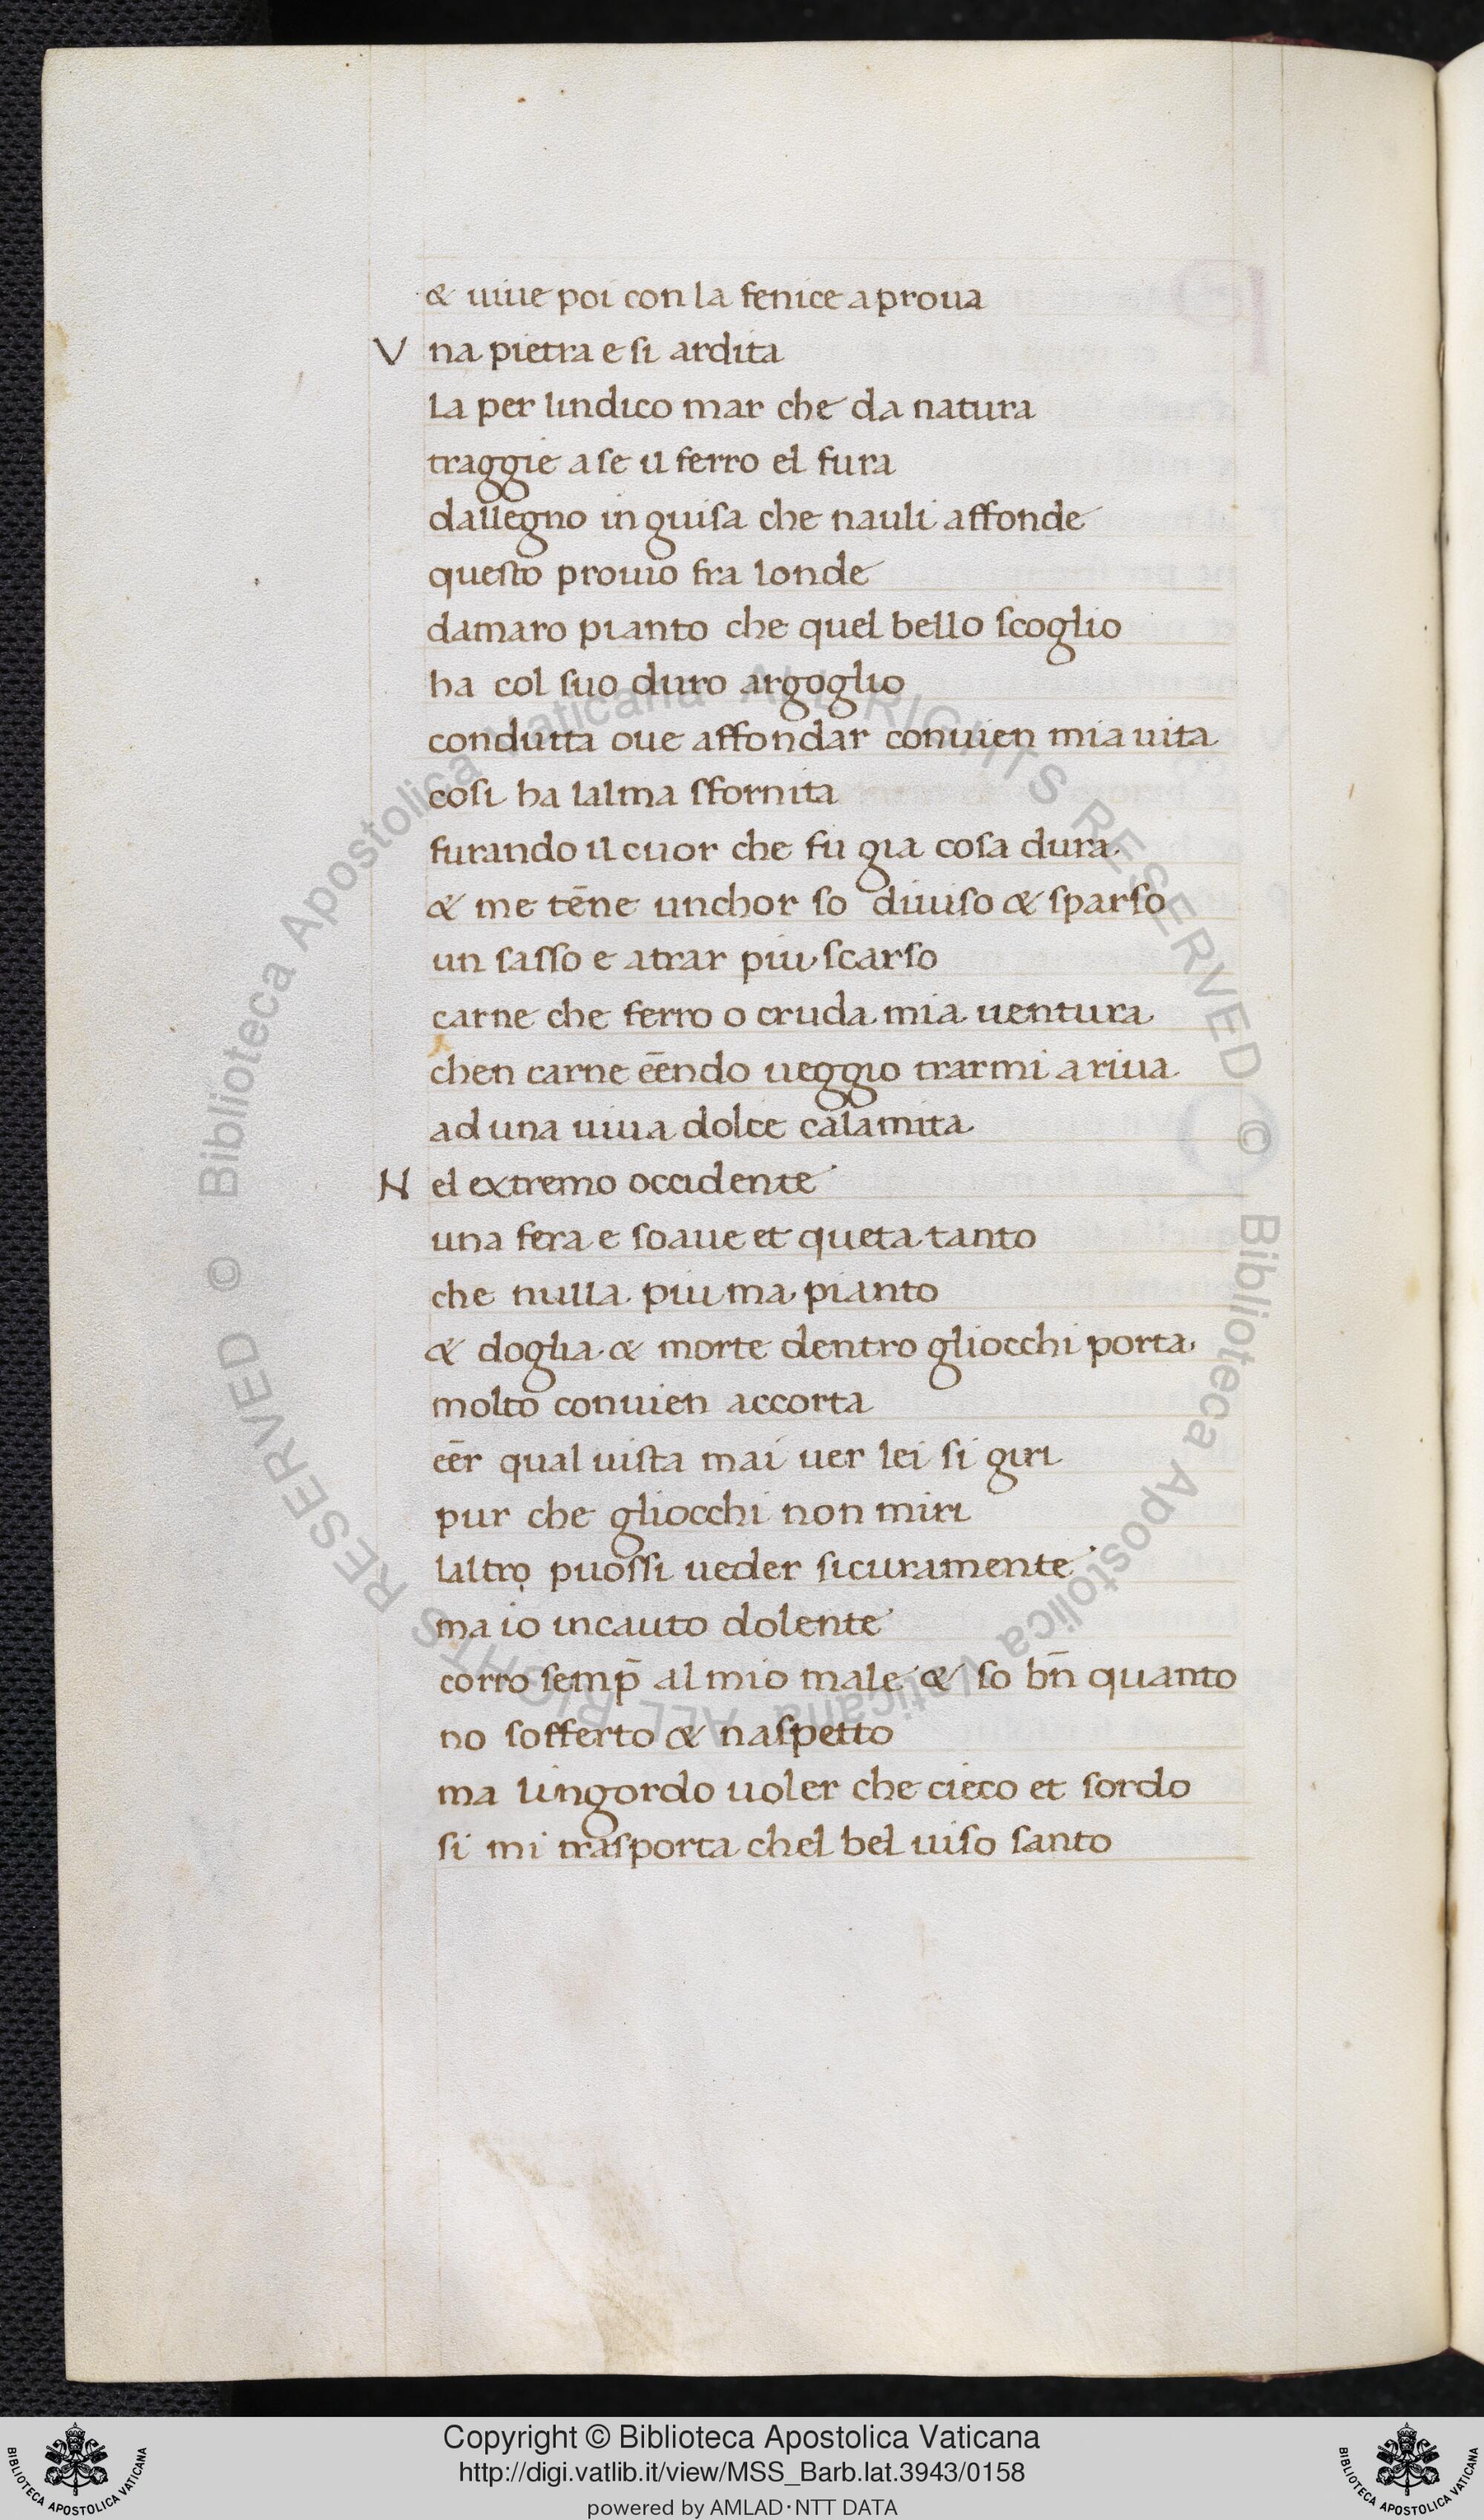 & uiue poi con la fenice a proua
V na pietra e si ardita
la per lindico mar che da natura
traggie a se il ferro el fura
dallegno in guisa che nauli affonde
questo prouio fra londe
damaro pianto che quel bello scoglio
ha col suo duro argoglio
condutta oue affondar conuien mia uita
cosi ha lalma sfornita
furando il cuor che fu gia cosa dura
& me tēne unchor so diuiso & sparso
un sasso e atrar piu scarso
carne che ferro o cruda mia uentura
chen carne eēndo ueggio trarmi a riua
ad una uiua dolce calamita
N el extremo occidente
una fera e soaue et queta tanto
che nulla piu ma pianto
& doglia & morte dentro gliocchi porta
molto conuien accorta
eēr qual uista mai uer lei si giri
pur che gliocchi non miri
laltrọ puossi ueder sicuramente
ma io incauto dolente
corro semp̄ al mio male & so bn̄ quanto
no sofferto & naspetto
ma lingordo uoler che cieco et sordo
si mi trasporta chel bel uiso santo
Biblioteca Apostolica Vaticana ALL RIGHTS RESERVED ©
Biblioteca Apostolica Vaticana ALL RIGHTS RESERVED ©
Copyright © Biblioteca Apostolica Vaticana
http://digi.vatlib.it/view/MSS_Barb.lat.3943/0158
powered by AMLAD·NTT DATA
BIBLIOTECA APOSTOLICA VATICANA
BIBLIOTECA APOSTOLICA VATICANA